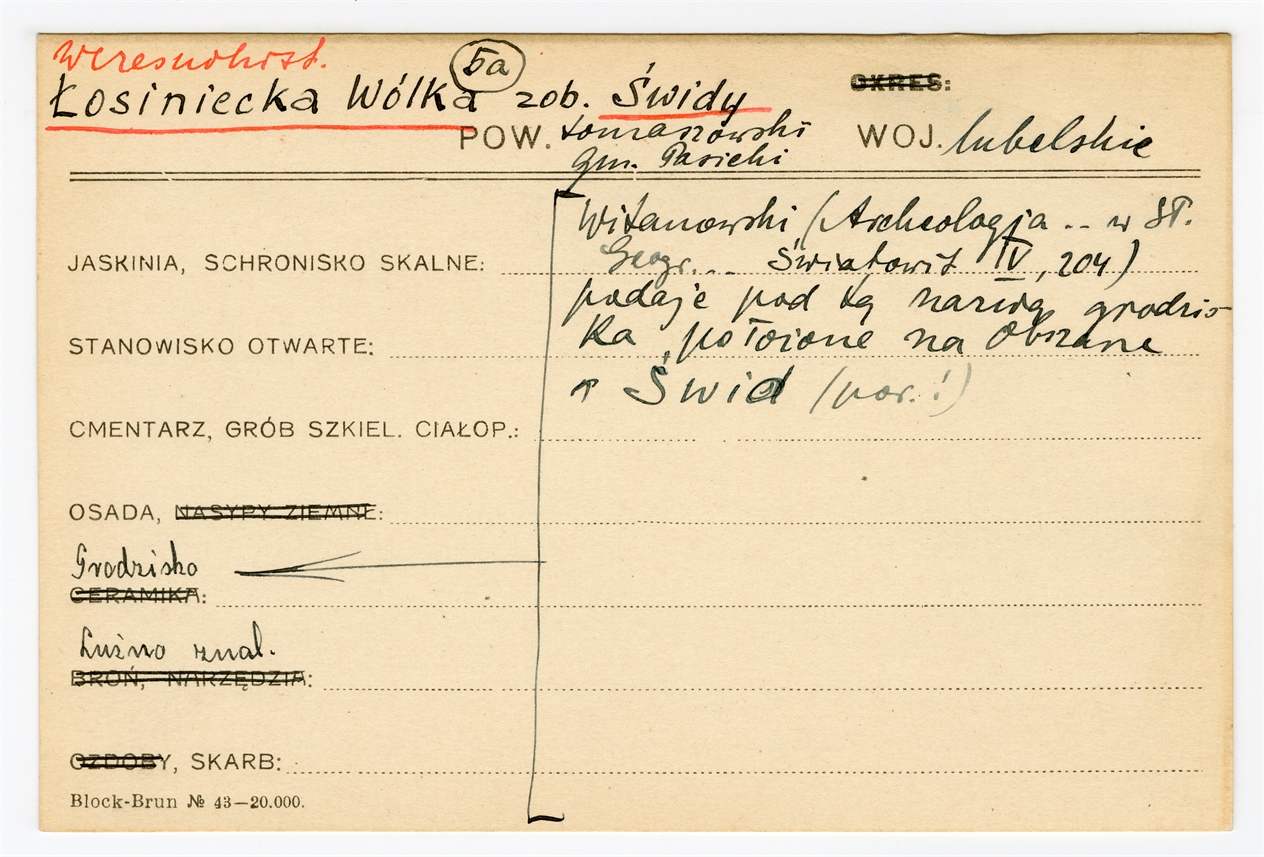 wczesnohist.
5a
Łosiniecka Wólka zob. Świdy
OKRES:
POW. tomaszowski WOJ. lubelskie
gm. Pasieki
Witanowski (Archeologja .. w Sł.
JASKINIA, SCHRONISKO SKALNE: Geogr... Światowit IV, 204)
podaje pod tą nazwą grodzis-
STANOWISKO OTWARTE: ka położone na obszarze
Świd (por.!)
CMENTARZ, GRÓB SZKIEL. CIAŁOP.:
OSADA, NASYPY ZIEMNE:
Grodzisko
CERAMIKA:
Luźno znal.
BROŃ, NARZĘDZIA:
OZDOBY, SKARB:
Block-Brun № 43—20.000.